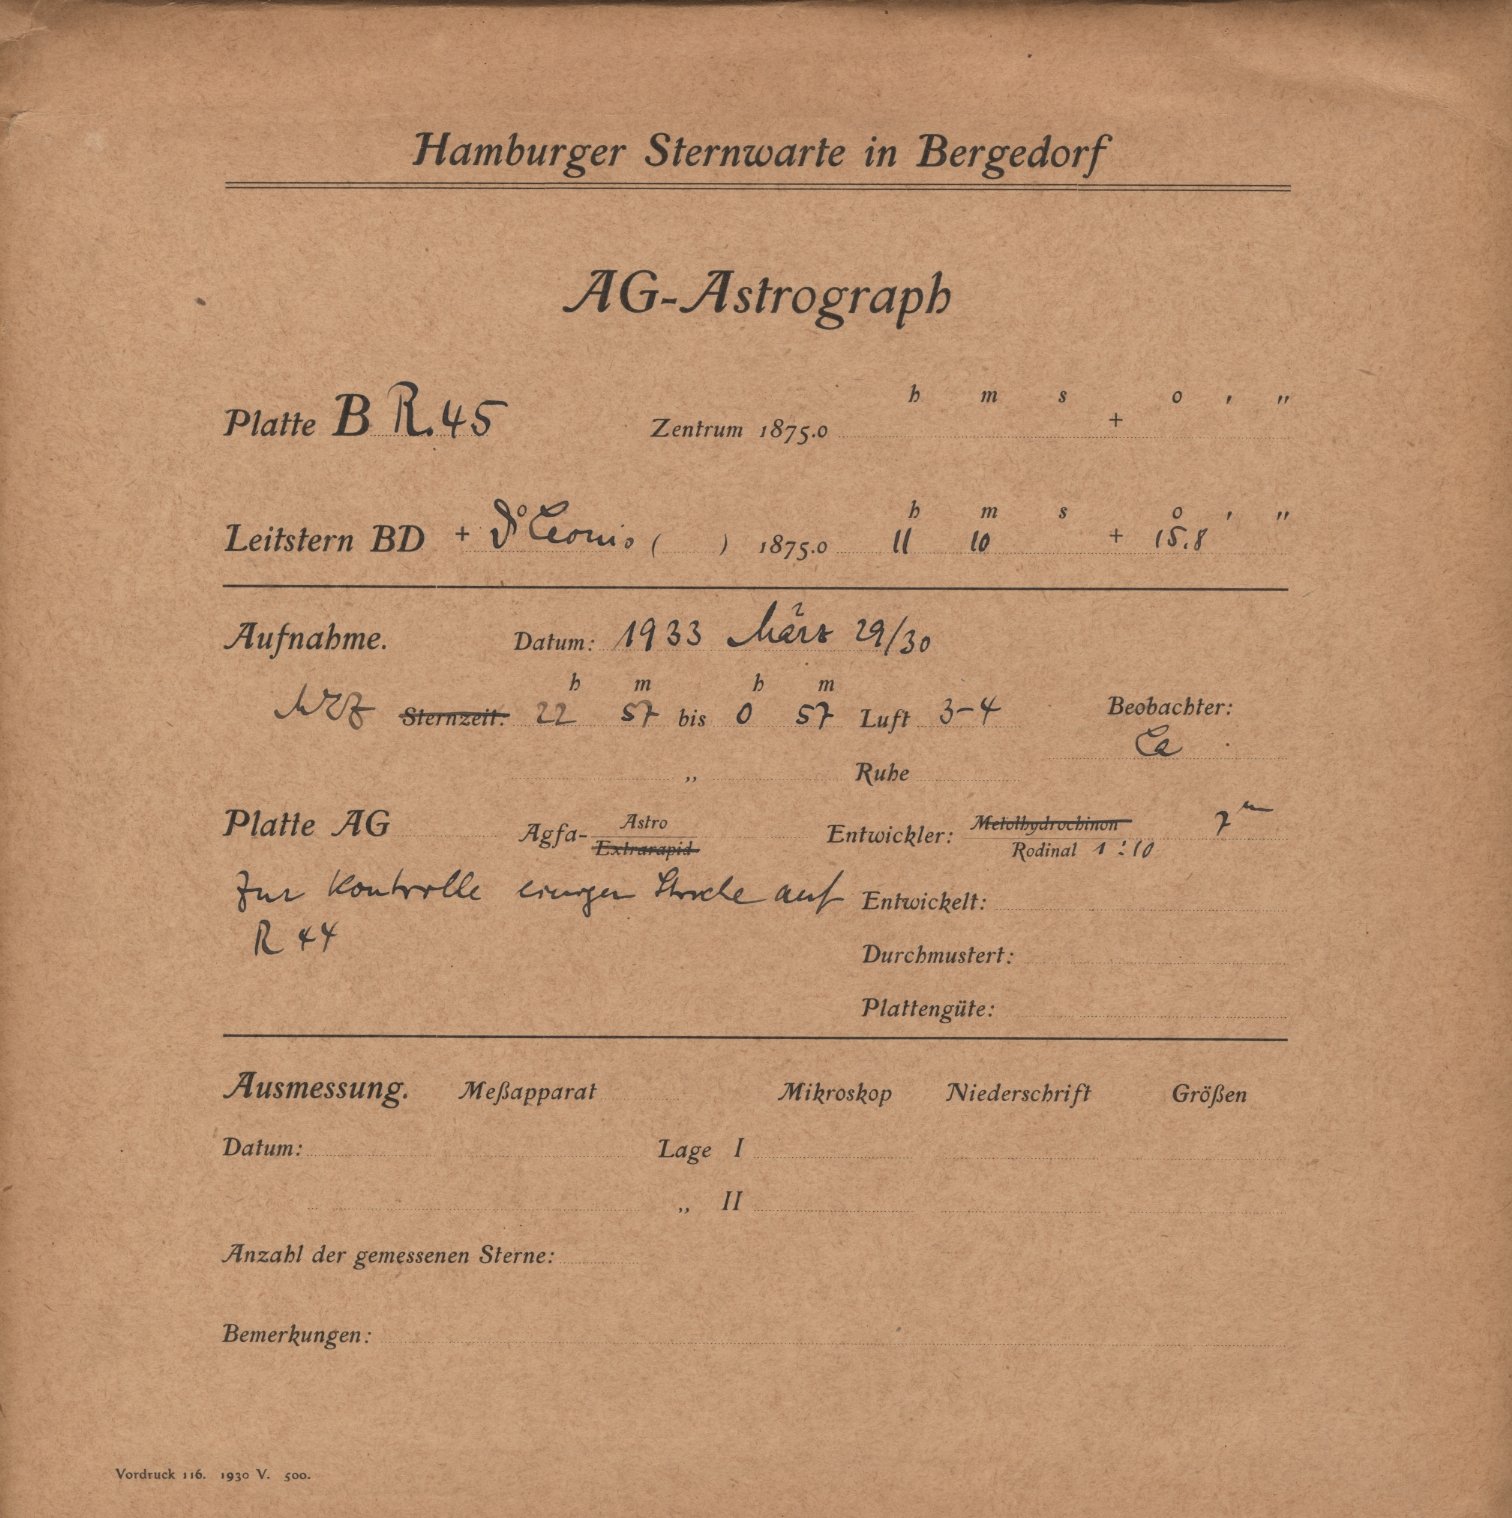 Hamburger Sternwarte in Bergedorf
AG-Astrograph
h m s o ' "
Platte B R.45 Zentrum 1875.0 +
h m s o ' "
Leitstern BD + Leonis ( ) 1875.0 11 10 + 15.8
Aufnahme. Datum: 1933 März 29/30
h m h m
MEZ Sternzeit: 22 57 bis 0 57 Luft 3-4 Beobachter:
„ Ruhe
Platte AG Agfa- Astro Extrarapid Entwickler: Metolhydrochinon Rodinal 1:10 7 m
Zur Kontrolle einiger auf Entwickelt:
R 44
Durchmustert:
Plattengüte:
Ausmessung. Meßapparat Mikroskop Niederschrift Größen
Datum: Lage I
„ II
Anzahl der gemessenen Sterne:
Bemerkungen:
Vordruck 116. 1930 V. 500.